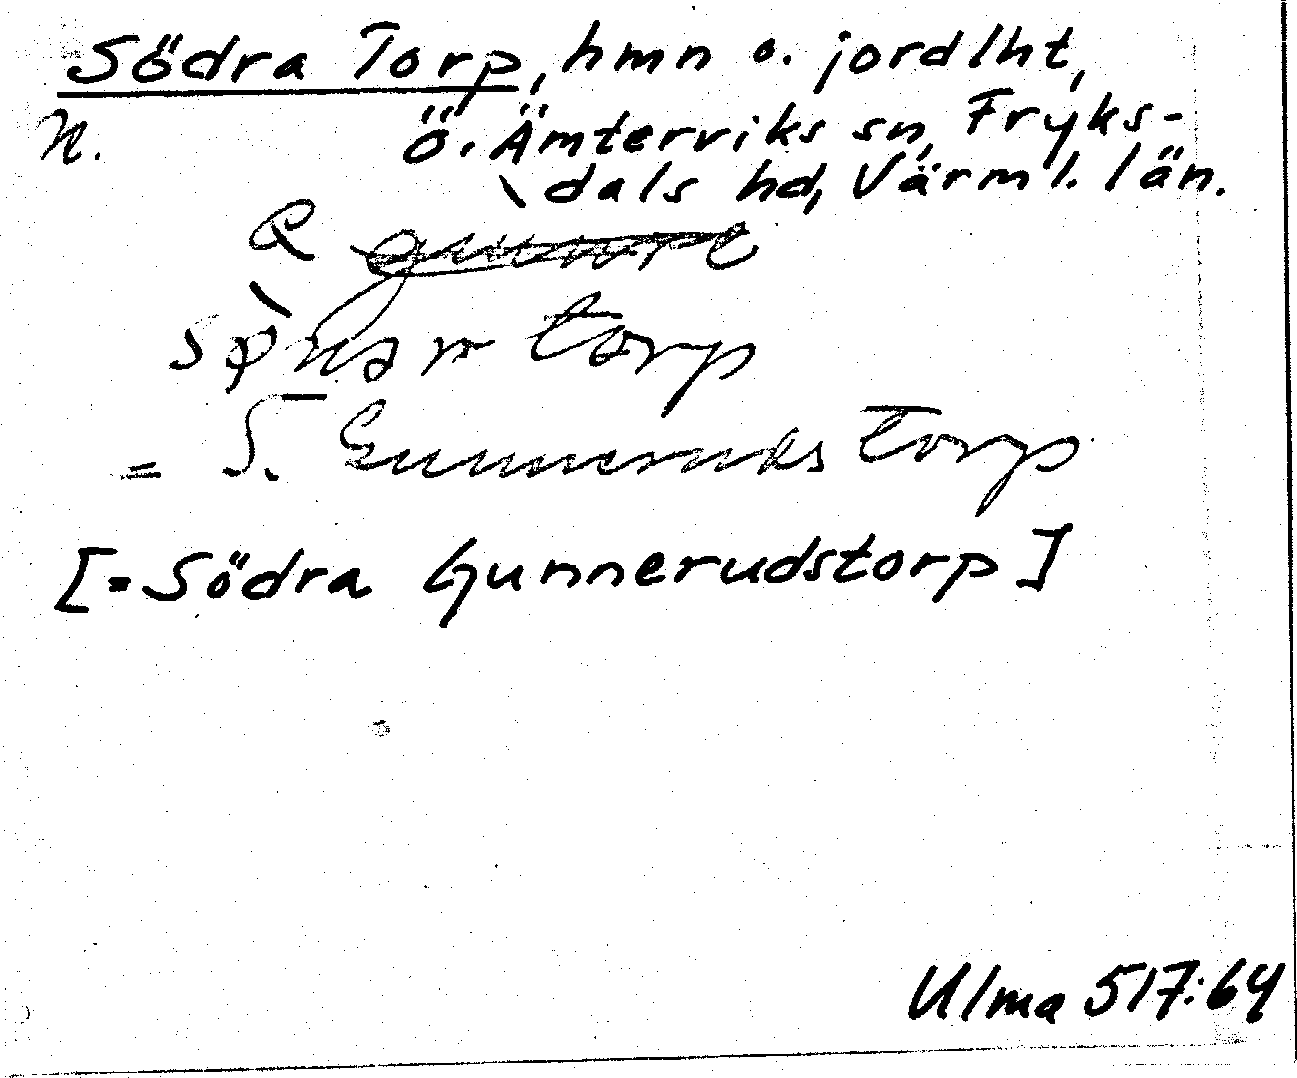 Södra Torp, hmn o. jordlht,
N. Ö. Ämterviks sn, Fryks-
dals hd, Värml. län.
torp
= S. Gunneruds torp
[= Södra Gunnerudstorp]
Ulma 517:64